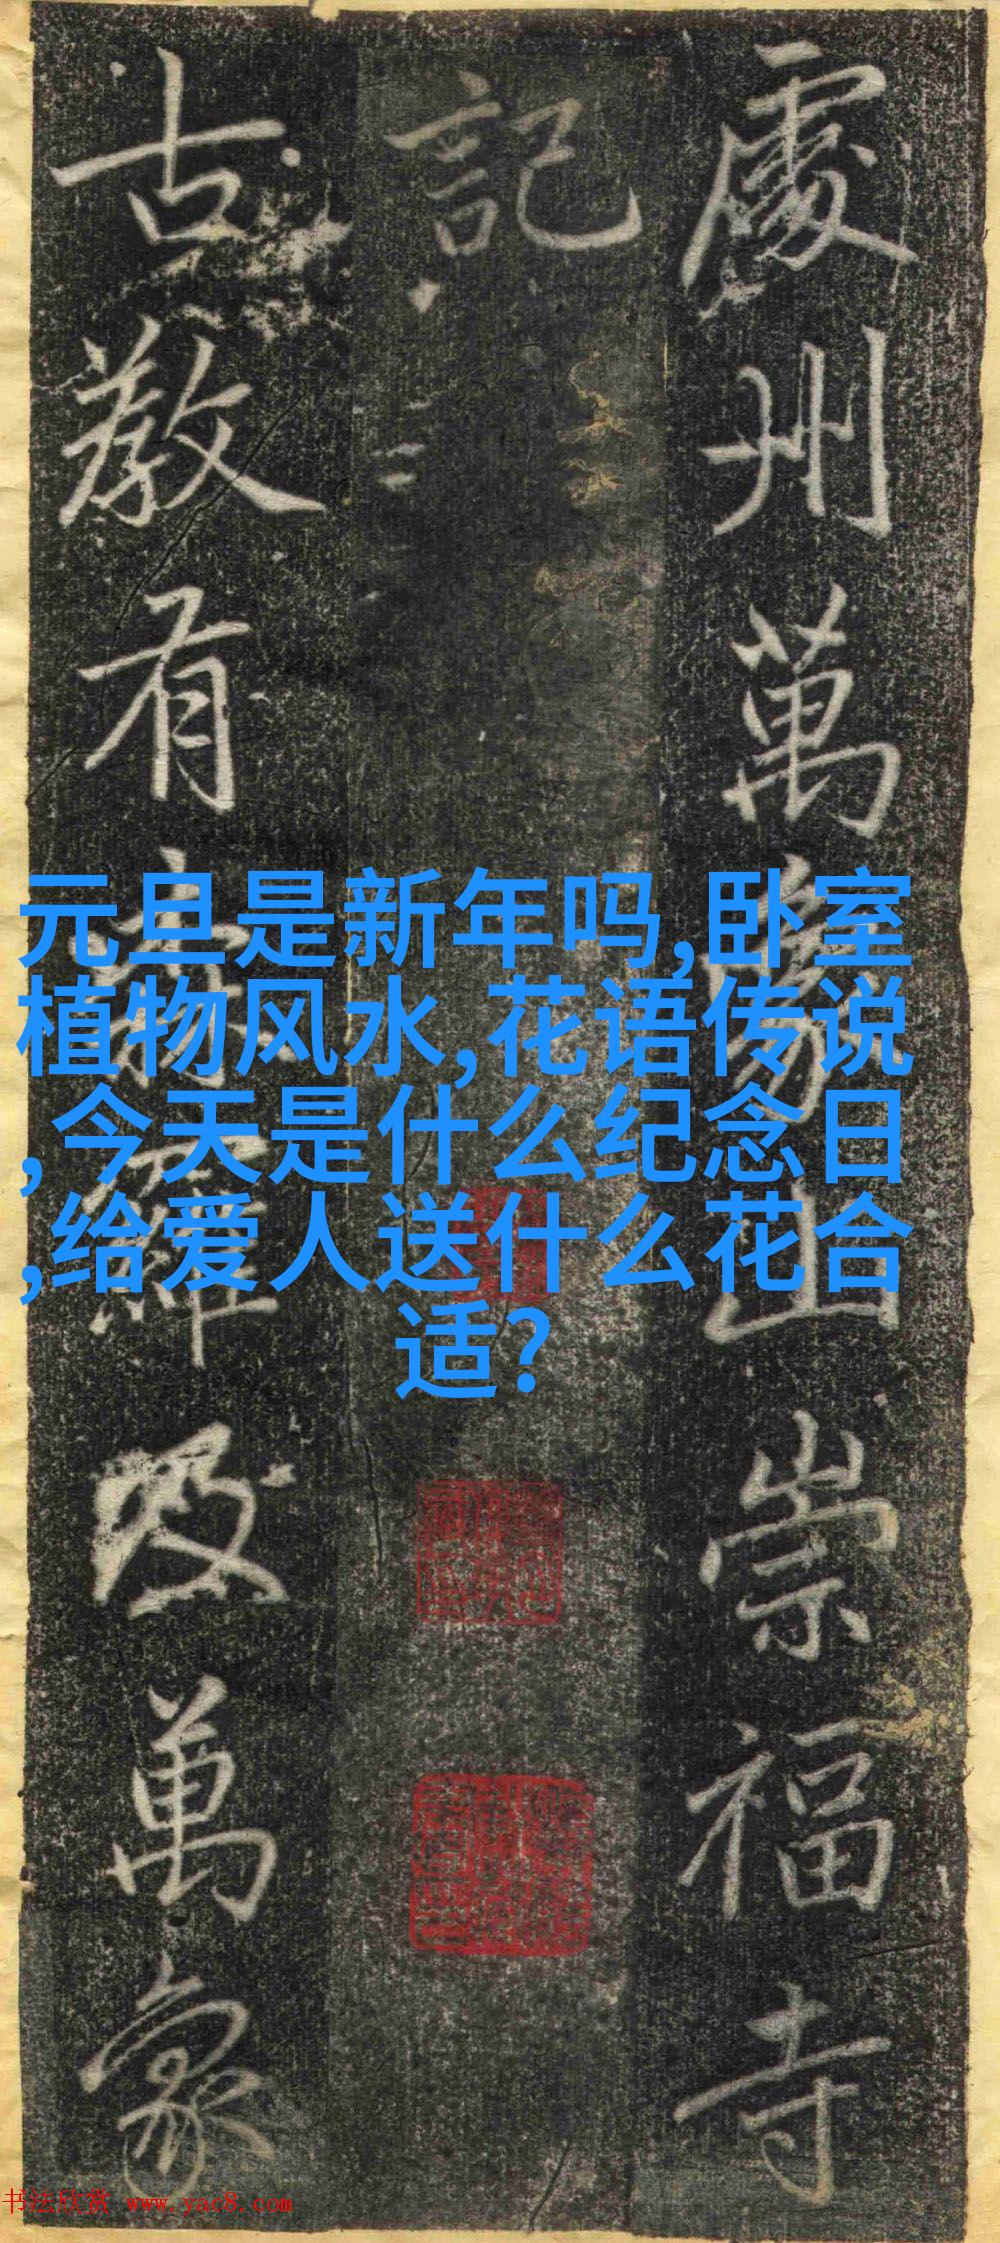 處州萬象山崇福寺
記
古教有羅及萬象
元旦是新年吗,卧室
植物风水,花语传说
,今天是什么纪念日
,给爱人送什么花合
适?
书法欣赏 www.yac8.com